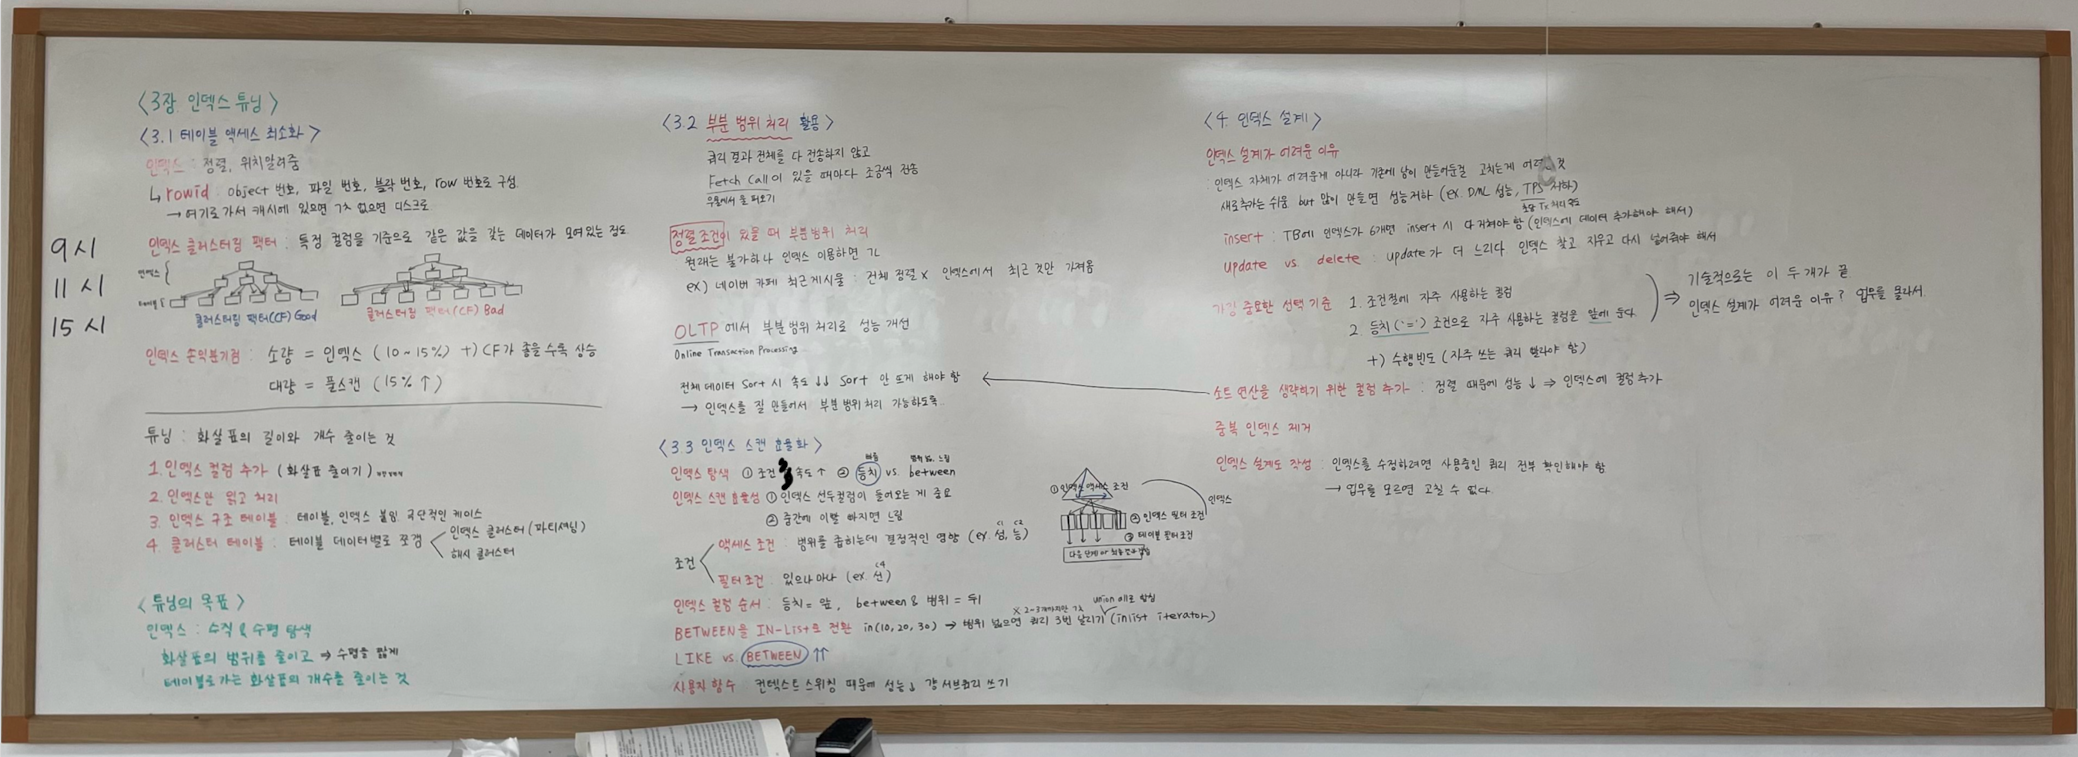 9시
11시
15시
<3장. 인덱스 튜닝>
<3.1 테이블 액세스 최소화>
인덱스 : 정렬, 위치알려줌
↳ rowid : object 번호, 파일 번호, 블락 번호, row 번호로 구성.
→ 여기로가서 캐시에 있으면 가져 없으면 디스크로
인덱스 클러스터링 팩터 : 특정 컬럼을 기준으로 같은 값을 갖는 데이터가 모여있는 정도
인덱스 {
테이블 {
클러스터링 팩터(CF) Good
클러스터링 팩터(CF) Bad
인덱스 손익분기점 : 소량 = 인덱스 (10~15%) +) CF가 좋을수록 상승
대량 = 풀스캔 (15%↑)
튜닝 : 화살표의 길이와 개수 줄이는 것
1. 인덱스 컬럼 추가 (화살표 줄이기)
2. 인덱스만 읽고 처리
3. 인덱스 구조 테이블 : 테이블, 인덱스 붙임. 극단적인 케이스
4. 클러스터 테이블 : 테이블 데이터별로 쪼갬
인덱스 클러스터 (파티셔닝)
해시 클러스터
<튜닝의 목표>
인덱스 : 수직 & 수평 탐색
화살표의 범위를 줄이고 → 수평을 짧게
테이블로가는 화살표의 개수를 줄이는 것
<3.2 부분 범위 처리 활용>
쿼리 결과 전체를 다 전송하지 않고
Fetch Call이 있을 때마다 조금씩 전송
우물에서 물 퍼오기
정렬조건이 있을 때 부분범위 처리
원래는 불가하나 인덱스 이용하면 가능
ex) 네이버 카페 최근게시물 : 전체 정렬 X 인덱스에서 최근 것만 가져옴
OLTP 에서 부분범위 처리로 성능 개선
Online Transaction Processing
전체 데이터 Sort 시 속도 ↓↓ Sort 안 뜨게 해야 함
→ 인덱스를 잘 만들어서 부분범위처리 가능하도록.
<3.3 인덱스 스캔 효율화>
인덱스 탐색 ① 조건 속도 ↑ ② 등치 vs. between
인덱스 스캔 효율성 ① 인덱스 선두컬럼이 들어오는 게 중요
② 중간에 이빨 빠지면 느림
조건
액세스 조건 : 범위를 좁히는데 결정적인 영향 (ex. 성, 능)
C1 C2
필터조건 : 있으나마나 (ex. 선)
C4
인덱스 컬럼 순서 : 등치 = 앞, between & 범위 = 뒤
BETWEEN을 IN-List로 전환 in(10,20,30) → 범위 넓으면 쿼리 3번 날리기 (inlist iterator)
union all로 합침
LIKE vs. BETWEEN ↑↑
사용자 함수 컨텍스트 스위칭 때문에 성능↓ 걍 서브쿼리 쓰기
① 인덱스 액세스 조건
② 인덱스 필터 조건
③ 테이블 필터조건
인덱스
<4. 인덱스 설계>
인덱스 설계가 어려운 이유
: 인덱스 자체가 어려운게 아니라 기존에 남이 만들어둔걸 고치는게 어려운 것
새로추가는 쉬움 but 많이 만들면 성능저하 (ex. DML 성능, TPS 저하)
초당 Tx 처리 속도
insert : TB에 인덱스가 6개면 insert 시 다 거쳐야 함 (인덱스에 데이터 추가해야 해서)
update vs. delete : update가 더 느리다. 인덱스 찾고 지우고 다시 넣어줘야 해서
가장 중요한 선택 기준 1. 조건절에 자주 사용하는 컬럼
2. 등치('=') 조건으로 자주 사용하는 컬럼을 앞에 둔다.
+) 수행빈도 (자주 쓰는 쿼리 빨라야 함)
⇒ 기술적으로는 이 두개가 끝
인덱스 설계가 어려운 이유? 업무를 몰라서.
소트 연산을 생략하기 위한 컬럼 추가 : 정렬 때문에 성능 ↓ ⇒ 인덱스에 컬럼 추가
중복 인덱스 제거
인덱스 설계도 작성 : 인덱스를 수정하려면 사용중인 쿼리 전부 확인해야 함
→ 업무를 모르면 고칠 수 없다.